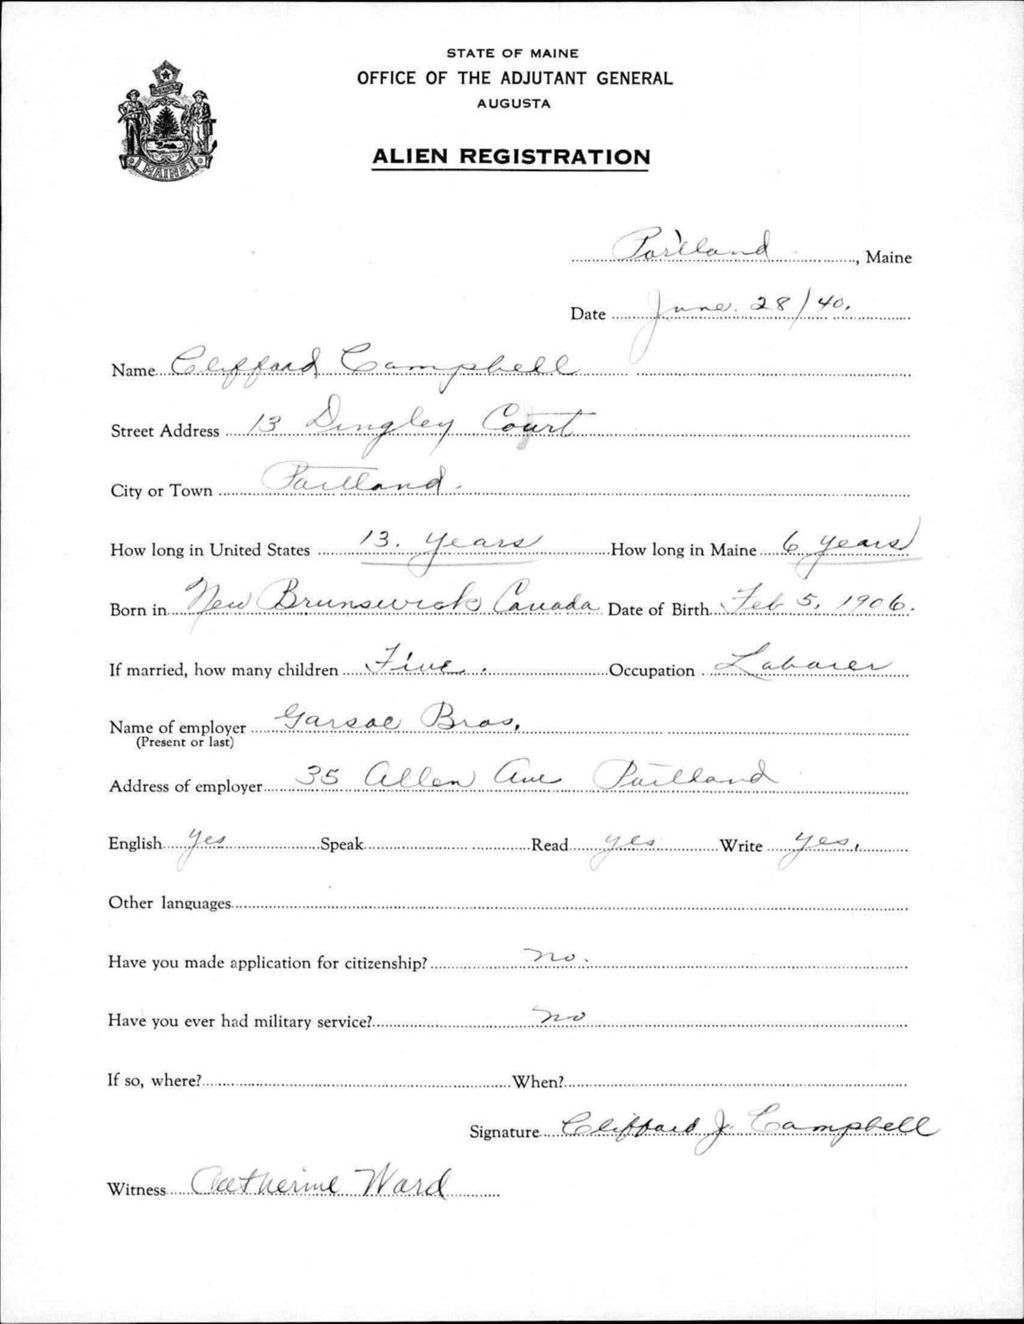 STATE OF MAINE
OFFICE OF THE ADJUTANT GENERAL
AUGUSTA
ALIEN REGISTRATION
MAINE
Portland, Maine
Date June. 28/40.
Name Clifford Campbell
Street Address 13 Dingley Court
City or Town Portland.
How long in United States 13. Years How long in Maine 6 years
Born in New Brunswick Canada Date of Birth Feb 5, 1906.
If married, how many children Five. Occupation Laborer
Name of employer Garsoe Bros.
(Present or last)
Address of employer 35 Allen Ave Portland
English Yes Speak Read yes Write yes.
Other languages
Have you made application for citizenship? no.
Have you ever had military service? no
If so, where? When?
Signature Clifford J. Campbell
Witness Catherine Ward